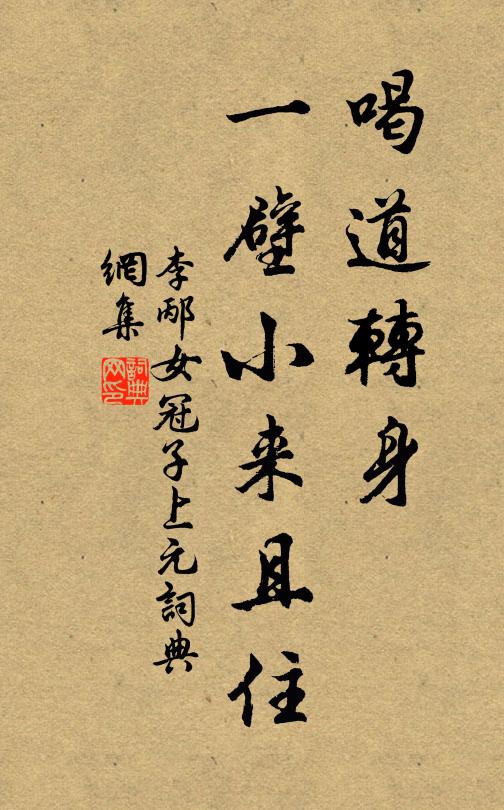 喝道轉身
一壁小来且住
李邴女冠子上元詞典
網集
詞典
网印